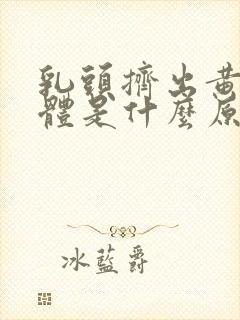 乳頭擠出黃
體是什麼原
冰藍爵